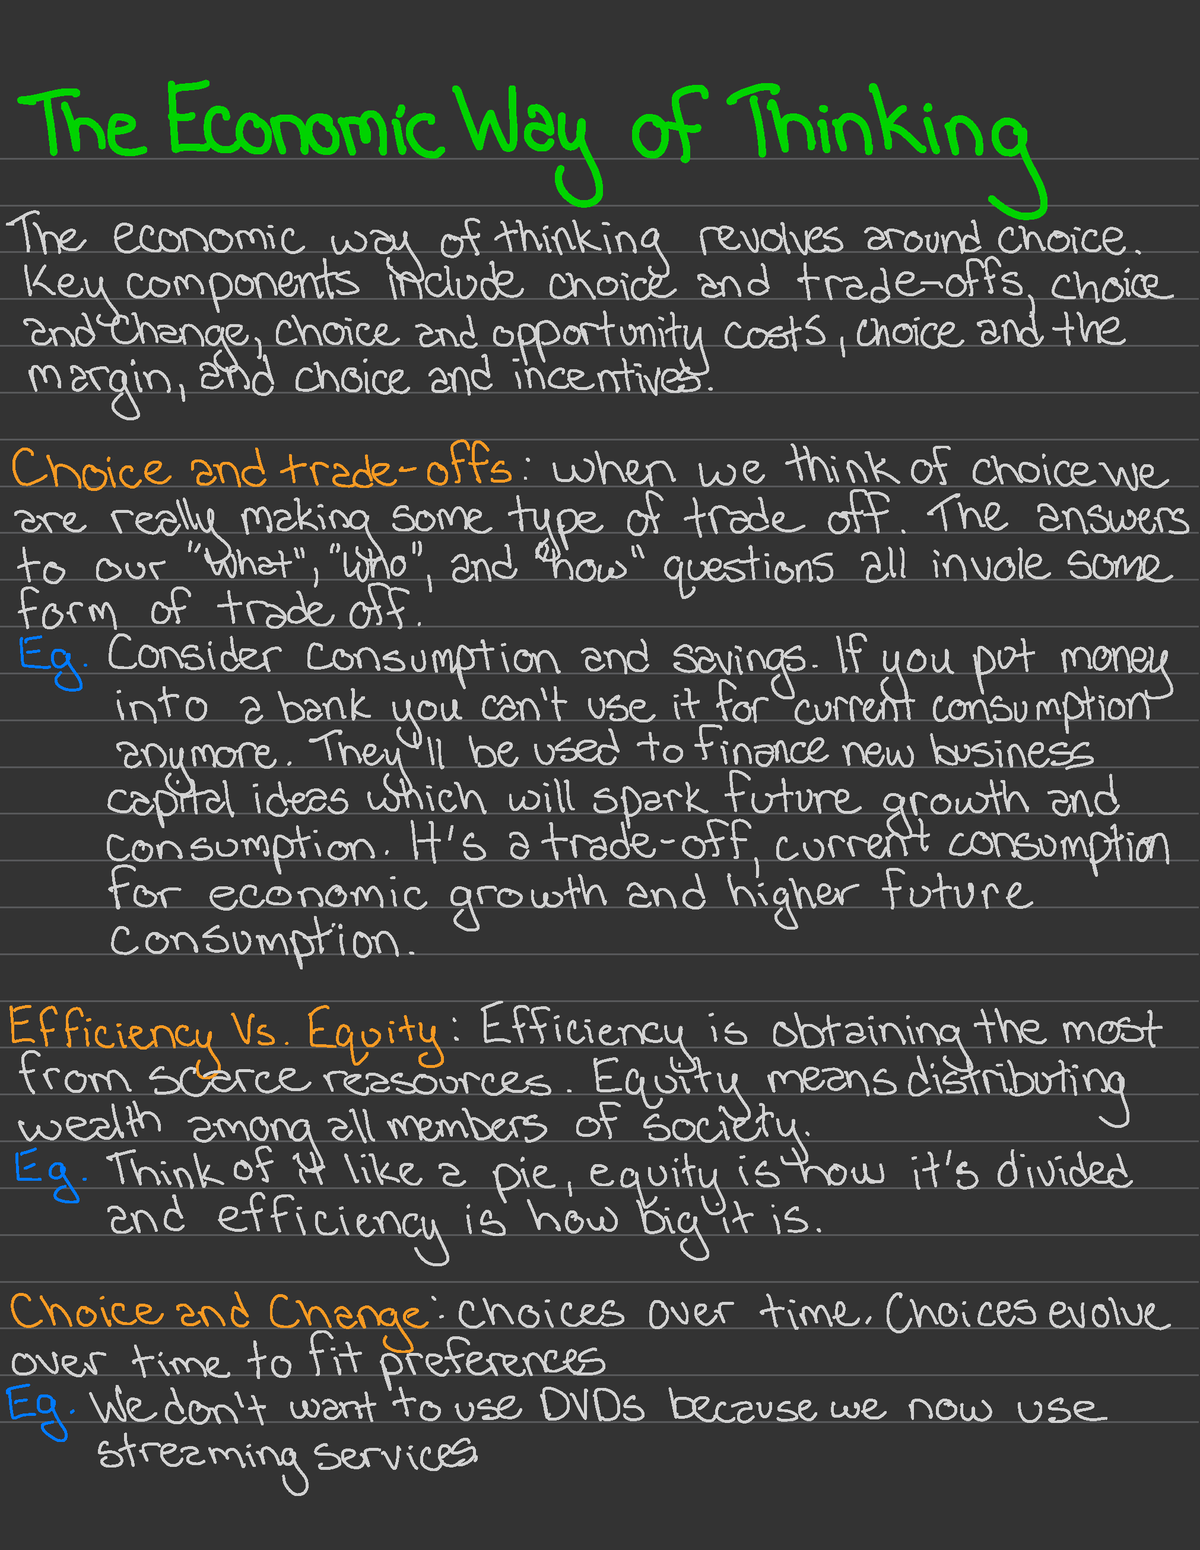 The Economic Way of Thinking
The economic way of thinking revolves around choice.
Key components include choice and trade-offs, choice
and change, choice and opportunity costs, choice and the
margin, and choice and incentives.
Choice and trade-offs: when we think of choice we
are really making some type of trade off. The answers
to our "what", "who", and "how" questions all invole some
form of trade off.
Eg. Consider consumption and savings. If you put money
into a bank you can't use it for current consumption
anymore. They'll be used to finance new business
capital ideas which will spark future growth and
consumption. It's a trade-off, current consumption
for economic growth and higher future
consumption.
Efficiency Vs. Equity: Efficiency is obtaining the most
from scarce reasources. Equity means distributing
wealth among all members of society.
Eg. Think of it like a pie, equity is how it's divided
and efficiency is how big it is.
Choice and Change: choices over time. Choices evolve
over time to fit preferences
Eg. We don't want to use DVDs because we now use
streaming services